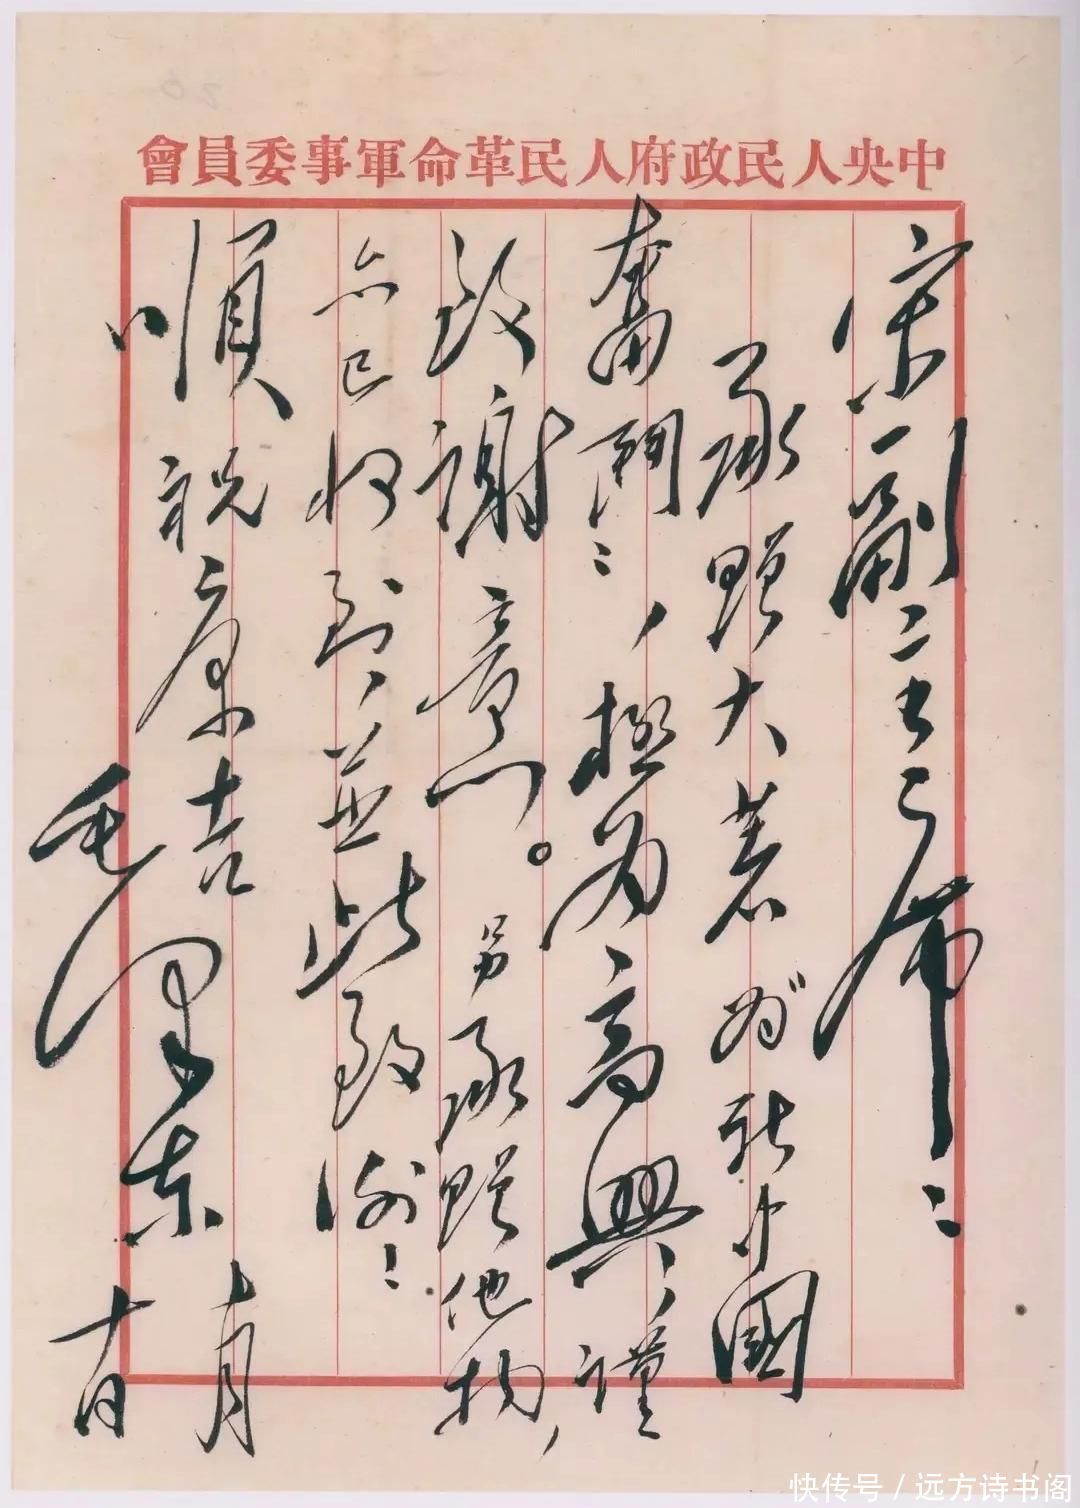 中央人民政府人民革命軍事委員會
宋副主席：
承贈大著“為新中國
奮鬥”，極為高興，謹
致謝意。另承贈他物，
亦已收到，並此致謝。
順祝康吉
毛澤東
十月
快传号 / 远方诗书阁